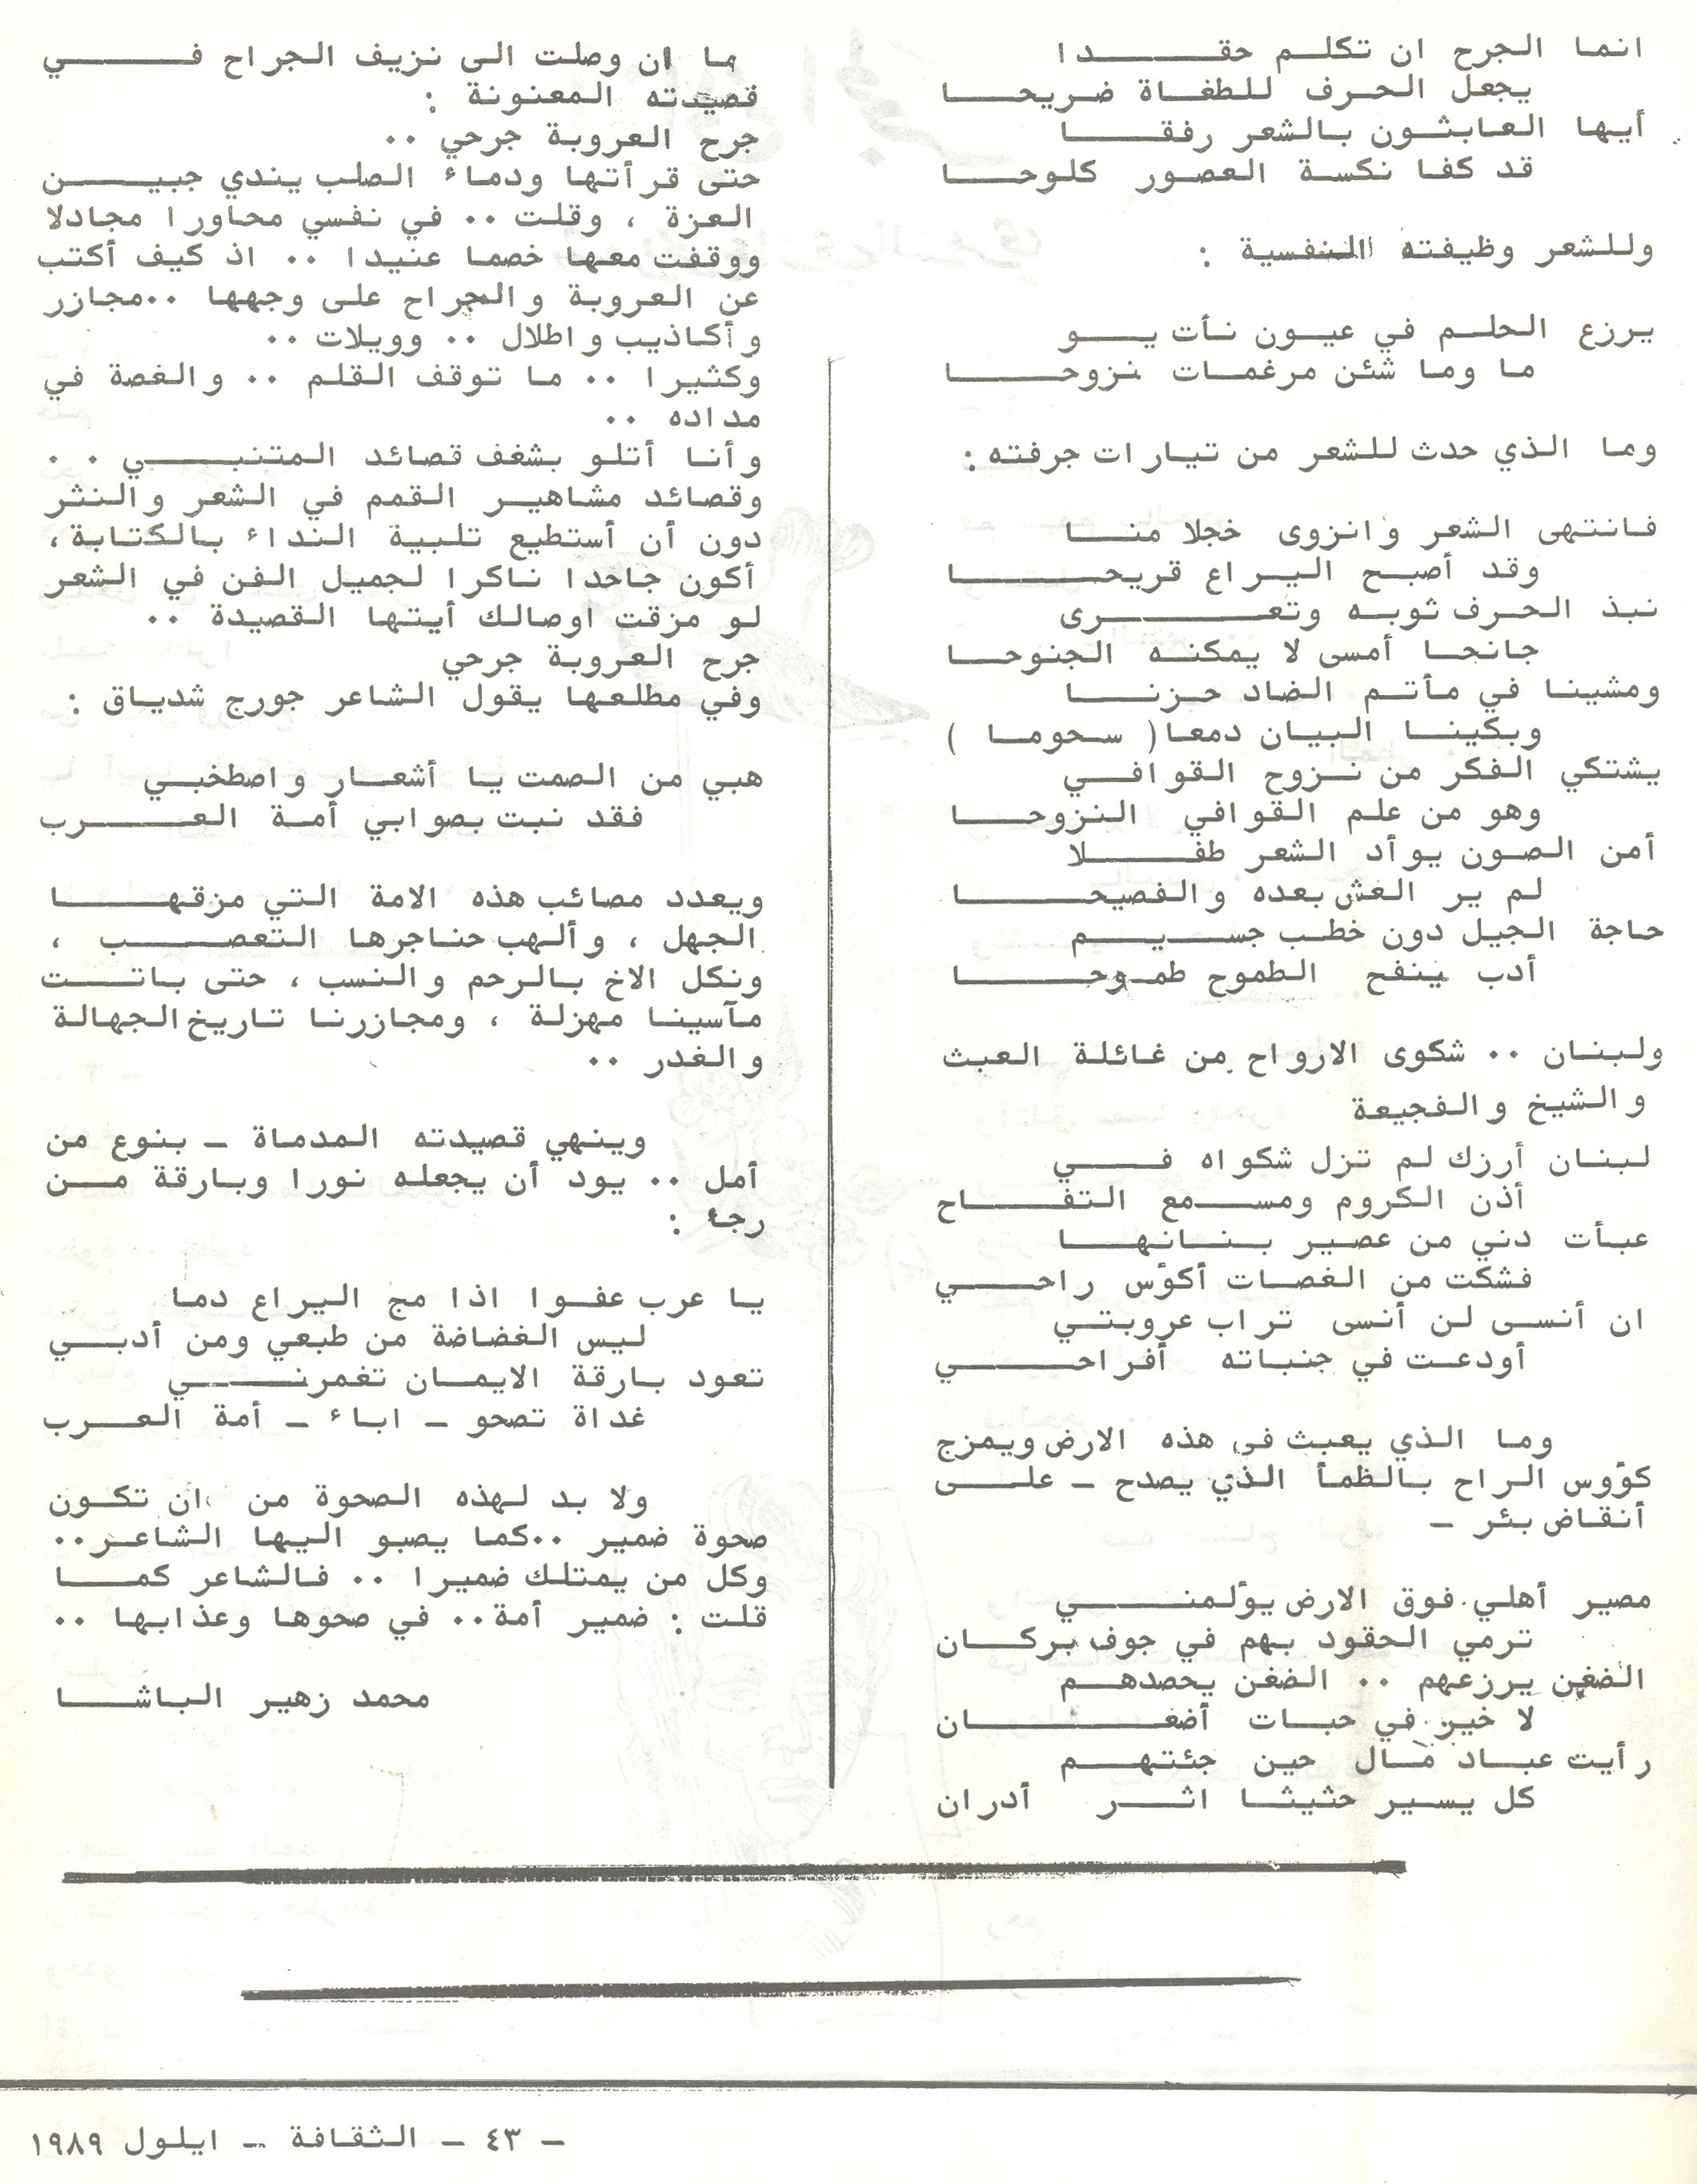 انما الجرح ان تكلم حقدا
يجعل الحرف للطغاة ضريحا
أيها العابثون بالشعر رفقا
قد كفا نكسة العصور كلوحا
وللشعر وظيفته النفسية :
يرزع الحلم في عيون نأت يو
ما وما شئن مرغمات نزوحا
وما الذي حدث للشعر من تيارات جرفته :
فانتهى الشعر وانزوى خجلا منا
وقد أصبح اليراع قريحا
نبذ الحرف ثوبه وتعرى
جانحا أمسى لا يمكنه الجنوحا
ومشينا في مأتم الضاد حزنا
وبكينا البيان دمعا ( سحوما )
يشتكي الفكر من نزوح القوافي
وهو من علم القوافي النزوحا
أمن الصون يوأد الشعر طفلا
لم ير العش بعده والفصيحا
حاجة الجيل دون خطب جسيم
أدب ينفح الطموح طموحا
ولبنان .. شكوى الارواح من غائلة العبث
والشيخ والفجيعة
لبنان أرزك لم تزل شكواه في
أذن الكروم ومسمع التفاح
عبأت دني من عصير بنانها
فشكت من الغصات أكؤس راحي
ان أنسى لن أنسى تراب عروبتي
أودعت في جنباته أفراحي
وما الذي يعبث في هذه الارض ويمزج
كؤوس الراح بالظمأ الذي يصدح - على
أنقاض بئر -
مصير أهلي فوق الارض يؤلمني
ترمي الحقود بهم في جوف بركان
الضغن يرزعهم .. الضغن يحصدهم
لا خير في حبات أضغان
رأيت عباد مال حين جئتهم
كل يسير حثيثا اثر أدران
ما ان وصلت الى نزيف الجراح في
قصيدته المعنونة :
جرح العروبة جرحي ..
حتى قرأتها ودماء الصلب يندي جبين
العزة ، وقلت .. في نفسي محاورا مجادلا
ووقفت معها خصما عنيدا .. اذ كيف أكتب
عن العروبة والجراح على وجهها ..مجازر
وأكاذيب واطلال .. وويلات ..
وكثيرا .. ما توقف القلم .. والغصة في
مداده ..
وأنا أتلو بشغف قصائد المتنبي ..
وقصائد مشاهير القمم في الشعر والنثر
دون أن أستطيع تلبية النداء بالكتابة،
أكون جاحدا ناكرا لجميل الفن في الشعر
لو مزقت اوصالك أيتها القصيدة ..
جرح العروبة جرحي
وفي مطلعها يقول الشاعر جورج شدياق :
هبي من الصمت يا أشعار واصطخبي
فقد نبت بصوابي أمة العرب
ويعدد مصائب هذه الامة التي مزقها
الجهل ، وألهب حناجرها التعصب ،
ونكل الاخ بالرحم والنسب ، حتى باتت
مآسينا مهزلة ، ومجازرنا تاريخ الجهالة
والغدر ..
وينهي قصيدته المدماة - بنوع من
أمل .. يود أن يجعله نورا وبارقة من
رجاء :
يا عرب عفوا اذا مج اليراع دما
ليس الغضاضة من طبعي ومن أدبي
تعود بارقة الايمان تغمرني
غداة تصحو - اباء - أمة العرب
ولا بد لهذه الصحوة من ان تكون
صحوة ضمير ..كما يصبو اليها الشاعر..
وكل من يمتلك ضميرا .. فالشاعر كما
قلت : ضمير أمة.. في صحوها وعذابها ..
محمد زهير الباشا
- ٤٣ - الثقافة - ايلول ١٩٨٩